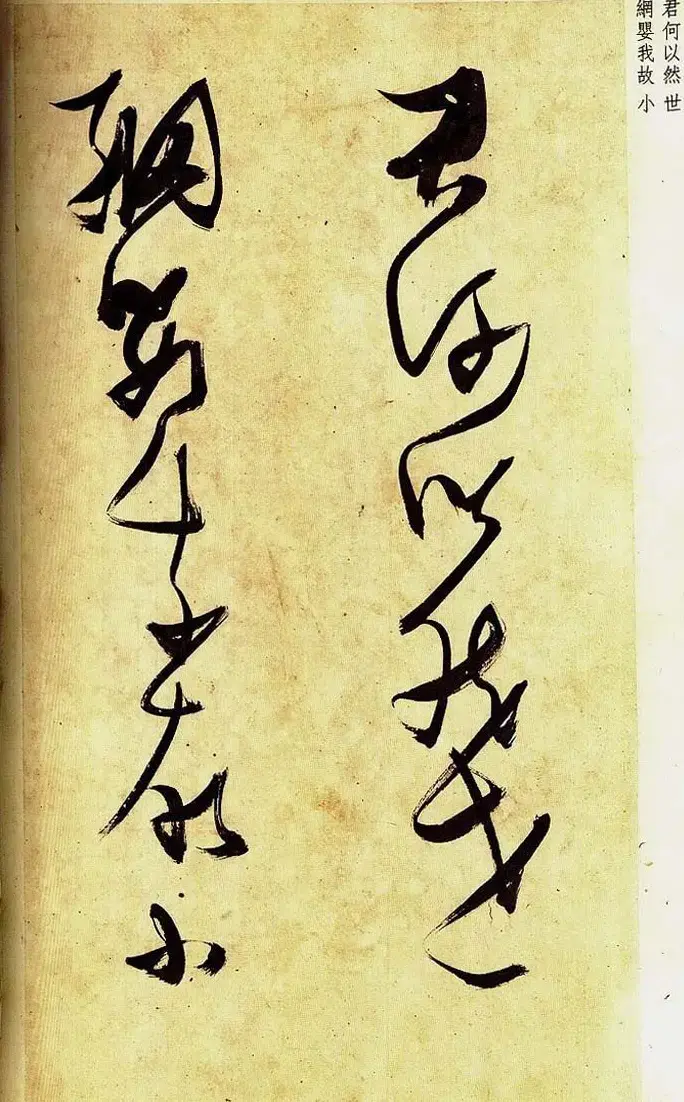 君何以然世
網嬰我故小
君何以然世
網嬰我故小